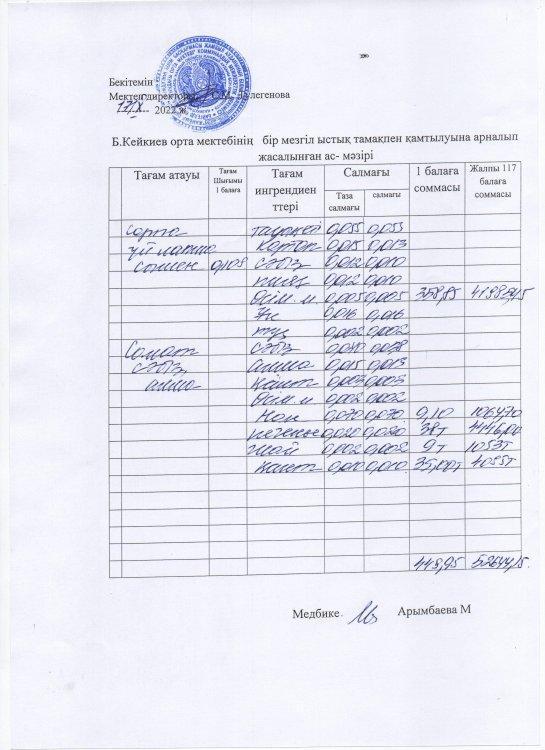 Бекітемін
Мектеп директоры Дүлегенова
17/X 2022 ж
Б.Кейкиев орта мектебінің бір мезгіл ыстық тамақпен қамтылуына арналып
жасалынған ас- мәзірі
Тағам атауы Тағам Шығымы 1 балаға Тағам ингрендиенттері Салмағы 1 балаға соммасы Жалпы 117 балаға соммасы
Таза салмағы салмағы
Сорпа 0,055 0,055
үймешпе Картоп 0,015 0,013
0,108 сәбіз 0,012 0,010
пияз 0,012 0,010
Өсім.м. 0,005 0,005 358,85
Ұн 0,016 0,016
тұз 0,002 0,002
Сомат сәбіз
сәбіз алма 0,015 0,013
алма қант 0,003 0,003
Өсім.м 0,002 0,002
Нан 0,070 0,070 9,10 1064,70
печенье 0,020 0,020 38т 4446,00
шай 0,002 0,002 9т 1053т
қант 0,010 0,010 4095т
52644,15
Медбике Арымбаева М